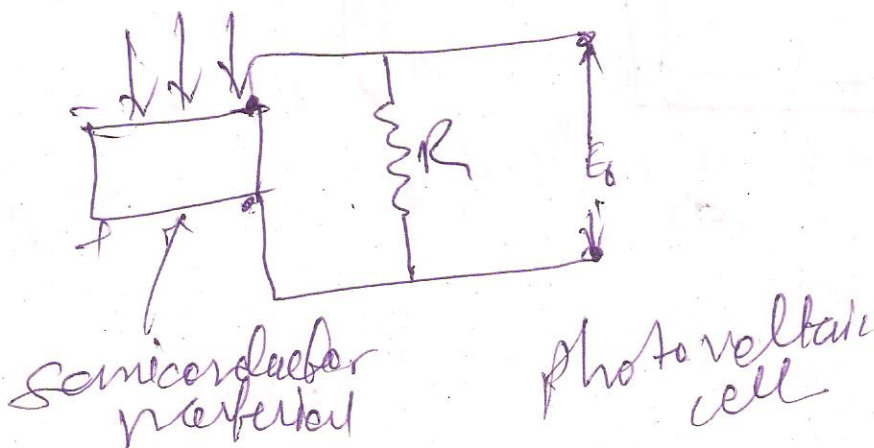 -
R
E₀
+
semiconductor
material
photovoltaic
cell